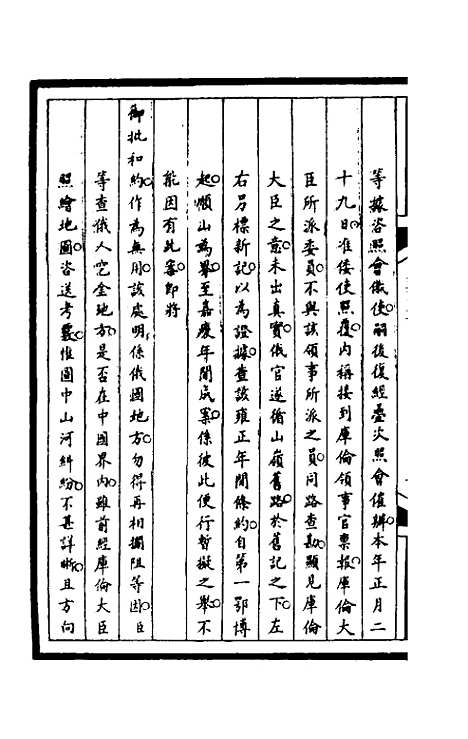 等據咨照會俄使嗣後復經臺次照會催辦本年正月二
十九日准倭使照覆內稱接到庫倫領事官稟報庫倫大
臣所派委員不與該領事所派之員同路查勘顯見庫倫
大臣之意未出真實俄官遂循山嶺舊路於舊記之下左
右另標新記以為證據查該雍正年間條約自第一鄂博
起順山為界至嘉慶年間成案係彼此便行暫擬之舉不
能因有此案即將
御批和約作為無用該處明係俄國地方勿得再相攔阻等因臣
等查俄人空金地方是否在中國界內雖前經庫倫大臣
照繪地圖咨送考覈惟圖中山河糾紛不甚詳晰且方向